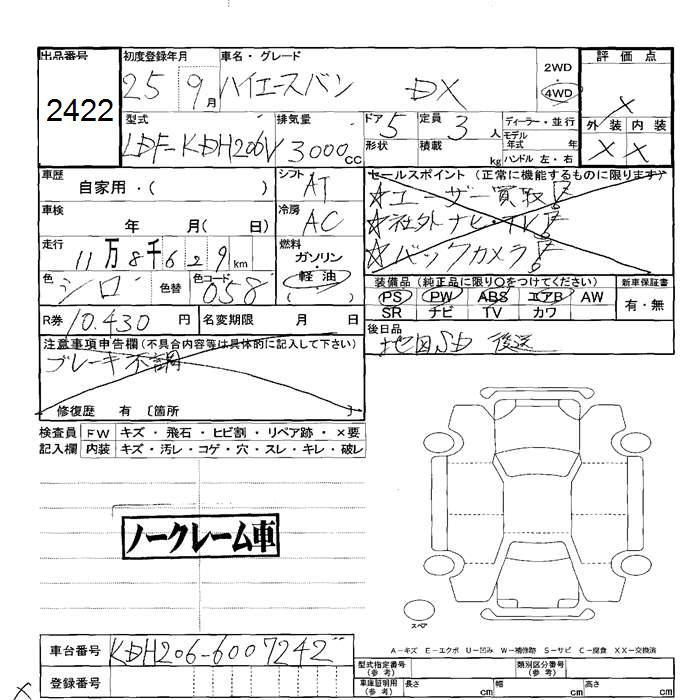 出品番号
2422
初度登録年月
25 9月
車名・グレード
ハイエースバン DX
2WD
4WD
評価点
X
外装 内装
X X
型式
LDF-KDH206V
排気量
3000cc
ドア 5
形状
定員 3人
積載 kg
ディーラー・並行
モデル年式 年
ハンドル 左・右
車歴
自家用・( )
シフト AT
セールスポイント (正常に機能するものに限ります)
☆ユーザー買取
☆社外ナビ・TV
☆バックカメラ
車検
年 月( 日)
冷房 AC
走行
11万8千629km
燃料
ガソリン
軽油
( )
色 シロ
色替
色コード 058
装備品 (純正品に限り○をつけてください)
PS PW ABS エアB AW
SR ナビ TV カワ
新車保証書
有・無
R券 10.430円
名変期限 月 日
後日品
地図SD 後送
注意事項申告欄 (不具合内容等は具体的に記入して下さい)
ブレーキ不調
修復歴 有 〔箇所 〕
検査員 FW キズ・飛石・ヒビ割・リペア跡・×要
記入欄 内装 キズ・汚レ・コゲ・穴・スレ・キレ・破レ
ノークレーム車
スペア
A-キズ E-エクボ U-凹み W-補修跡 S-サビ C-腐食 XX-交換済
車台番号 KDH206-6007242
登録番号
型式指定番号(参考)
類別区分番号(参考)
車庫証明用(参考) 長さ cm 幅 cm 高さ cm
X